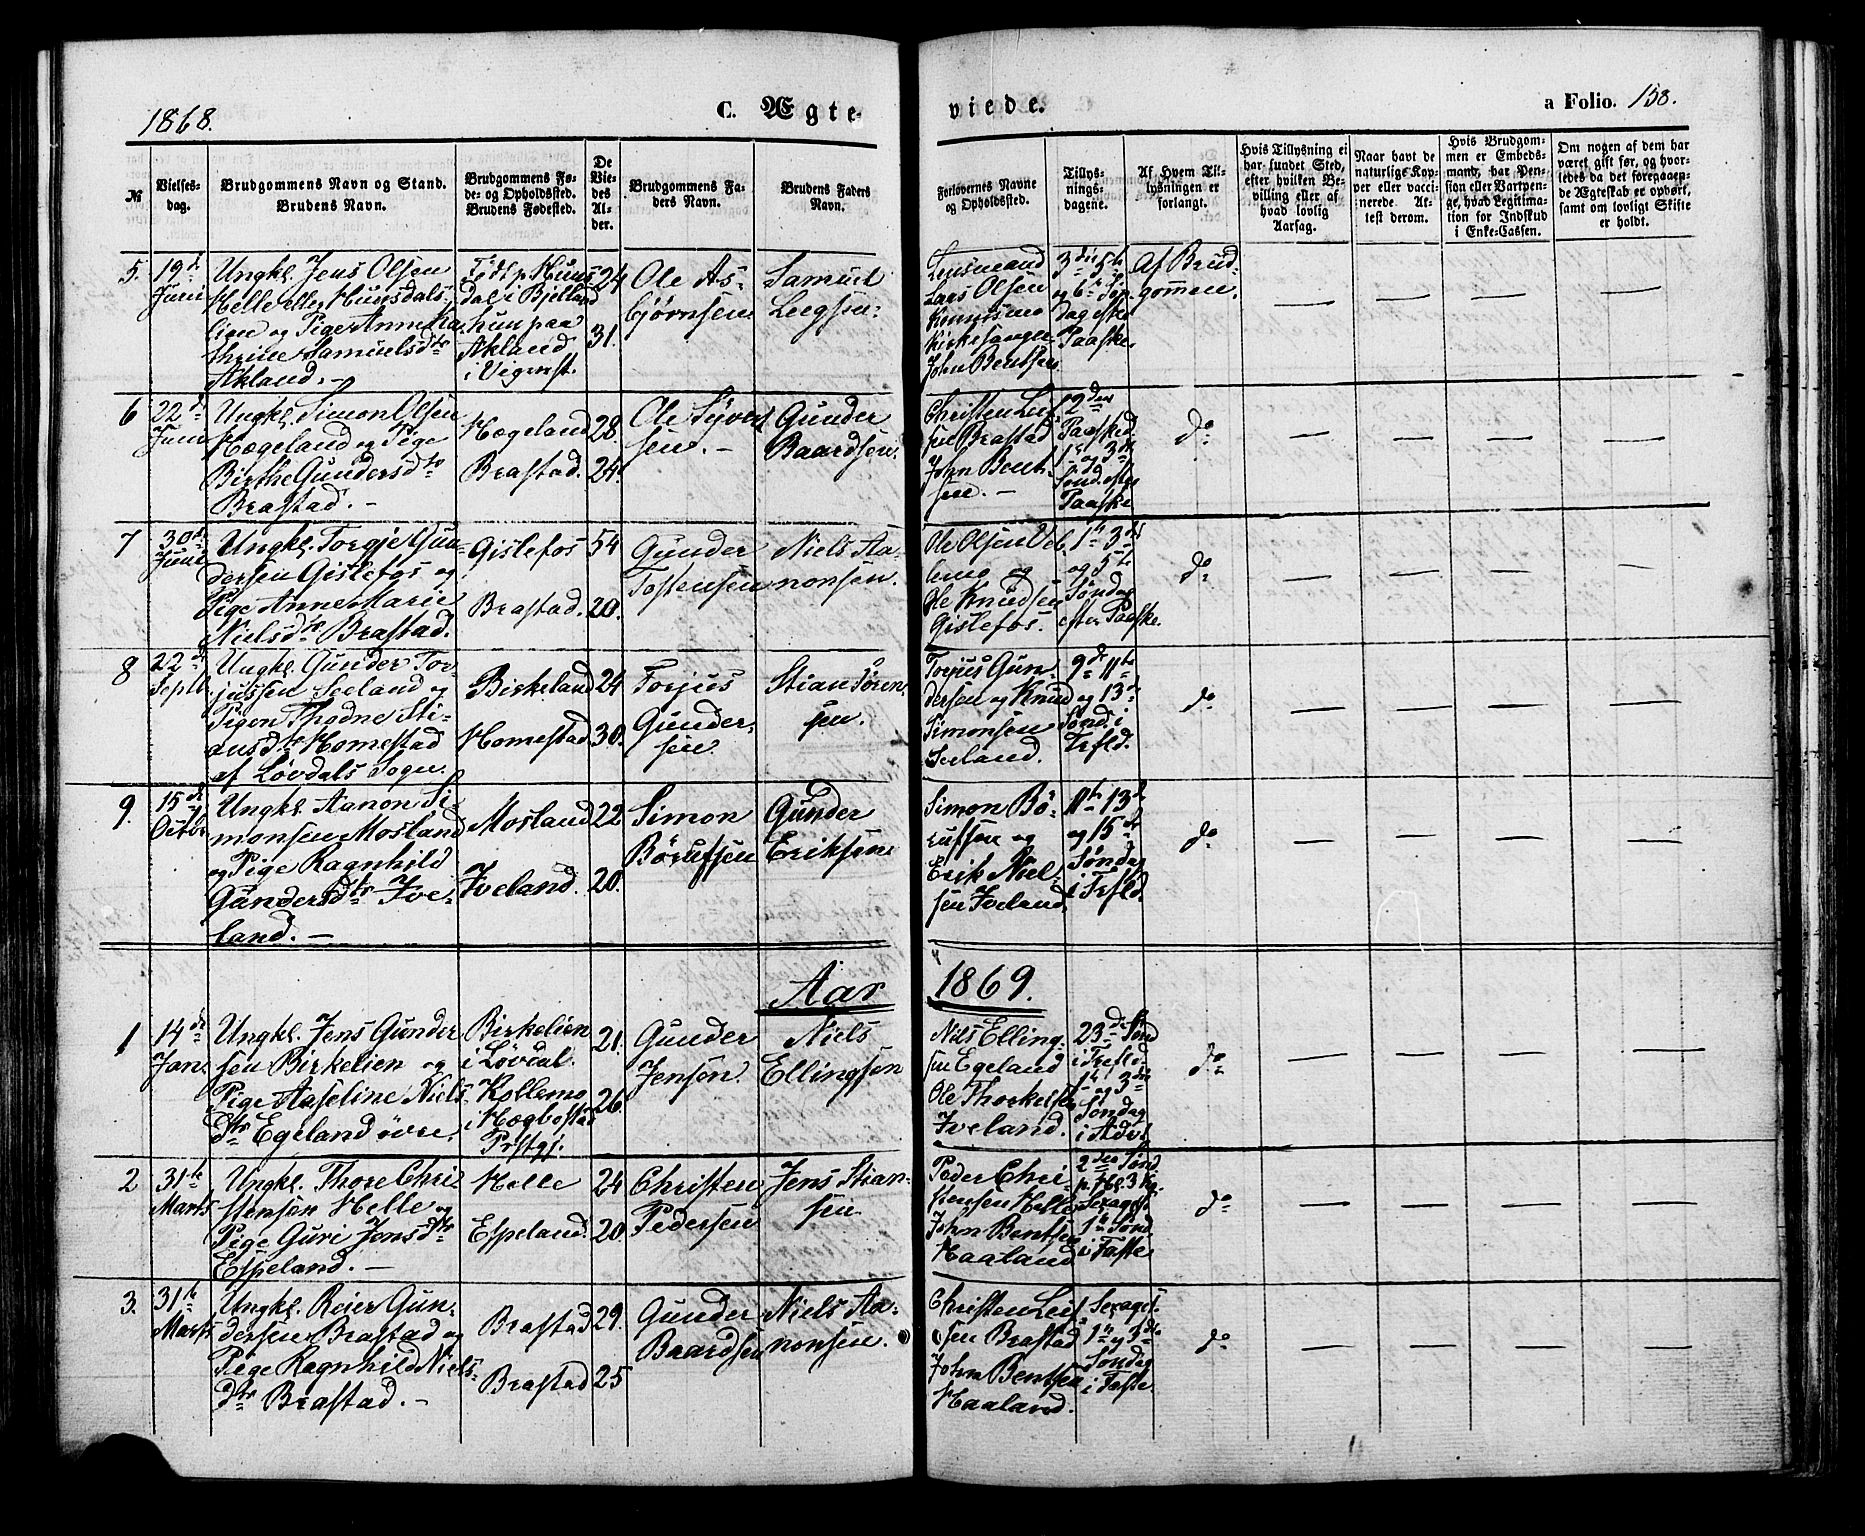 1868.
C. Ægte-
viede.
a Folio. 158.
№
Vielses-
dag.
Brudgommens Navn og Stand.
Brudens Navn.
Brudgommens Fø-
de- og Opholdssted.
Brudens Fødested.
De
Vie-
des
Al-
der.
Brudgommens Fa-
ders Navn.
Brudens Faders
Navn.
Forlovernes Navne
og Opholdssted.
Tillys-
nings-
dagene.
Af Hvem Til-
lysningen er
forlangt.
Hvis Tillysning ei
har fundet Sted,
efter hvilken Be-
villing eller af
hvad lovlig
Aarsag.
Naar havt de
naturlige Kop-
per eller vacci-
nerede. At-
test derom.
Hvis Brudgom-
men er Embeds-
mand, har Pen-
sion eller Vartpen-
ge, hvad Legitima-
tion for Indskud
i Enke-Cassen.
Om nogen af dem har
været gift før, og hvor-
ledes da det foregaaen-
de Ægteskab er ophørt,
samt om lovligt Skifte
er holdt.
5.
19d
Juni
Ungkl. Jens Olsen
Helle eller Hunsdals-
lien og Pige Anne Ka-
thrine Samuelsdtr
Akland. —
Født p. Huns
dal i Bjelland
hun paa
Akland
i Vigmst.
24
31.
Ole As-
bjørnsen
Samuel
Leegsen
Lensmand
Lars Olsen
Kirkesanger
John Bentsen
3die 5te
og 6te Søn-
dag efter
Paaske.
Af Brud-
gommen.
6
22d
Juni
Ungkl. Simon Olsen
Hægeland og Pige
Birthe Gundersdtr
Brastad. —
Hægeland
Brastad.
28.
24.
Ole Syvert
sen. —
Gunder
Baardsen.
Christen Leif
sen Brastad
John Bent-
sen. —
2den
Paasked.
1ste og 3die
Sønd. efter
Paaske
do
7
30d
Juni
Ungkl. Torgje Gun-
dersen Gislefos og
Pige Anne Marie
Nielsdtr Brastad.
Gislefos
Brastad.
54
20.
Gunder
Tostensen
Niels Aa-
nonsen.
Ole Olsen Veb
lemo og
Ole Knudsen
Gislefos.
1ste 3die
og 5te
Søndag
efter Paaske.
do
8
22d
Septb.
Ungkl. Gunder Tor-
jussen Seeland og
Pigen Thodne Sti-
ansdtr Homestad
af Løvdals Sogn.
Birkeland
Homestad
24
30.
Torjus
Gunder-
sen.
Stian Søren
sen.
Torjus Gun-
dersen og Knud
Simonsen
Seeland.
9de 11te
og 13de
Sønd. i
Trefld.
do
9.
15de
Octbr
Ungkl. Aanon Si-
monsen Mosland
og Pige Ragnhild
Gundersdtr Ive-
land. —
Mosland
Iveland.
22
20.
Simon
Børufsen
Gunder
Eriksen
Simon Bø-
rufsen og
Erik Niel-
sen Iveland.
11te 13de
og 15de
Søndag
i Trefld.
do
Aar 1869.
1
14de
Jan.
Ungkl. Jens Gunder
sen Birkelien og
Pige Aaseline Niels
dtr Egeland øvre.
Birkelien
i Løvdal.
Kollemo
i Hægbostad
Prstgj.
21.
26.
Gunder
Jensen.
Niels
Ellingsen
Nils Elling-
sen Egeland
Ole Thorkelsen
Iveland.
23de Sønd
i Trefld.
1ste og 3die
Søndag
i Advt.
do
2
31te
Marts
Ungkl. Thore Chri
stensen Helle og
Pige Guri Jensdtr
Espeland. —
Helle
Espeland.
24
20.
Christen
Pedersen
Jens Stian-
sen
Peder Chri-
stensen Helle
John Bentsen
Haaland
2den Sønd
p. Hl. 3 Kg.
Sexages.
1ste Sønd
i Faste
do
3.
31te
Marts
Ungkl. Reier Gun-
dersen Brastad og
Pige Ragnhild Niels-
dtr Brastad. —
Brastad
Brastad
29.
25
Gunder
Baardsen
Niels Aa-
nonsen.
Christen Leif-
sen Brastad
John Bentsen
Haaland.
Sexages.
1ste og 3die
Søndag
i Faste.
do